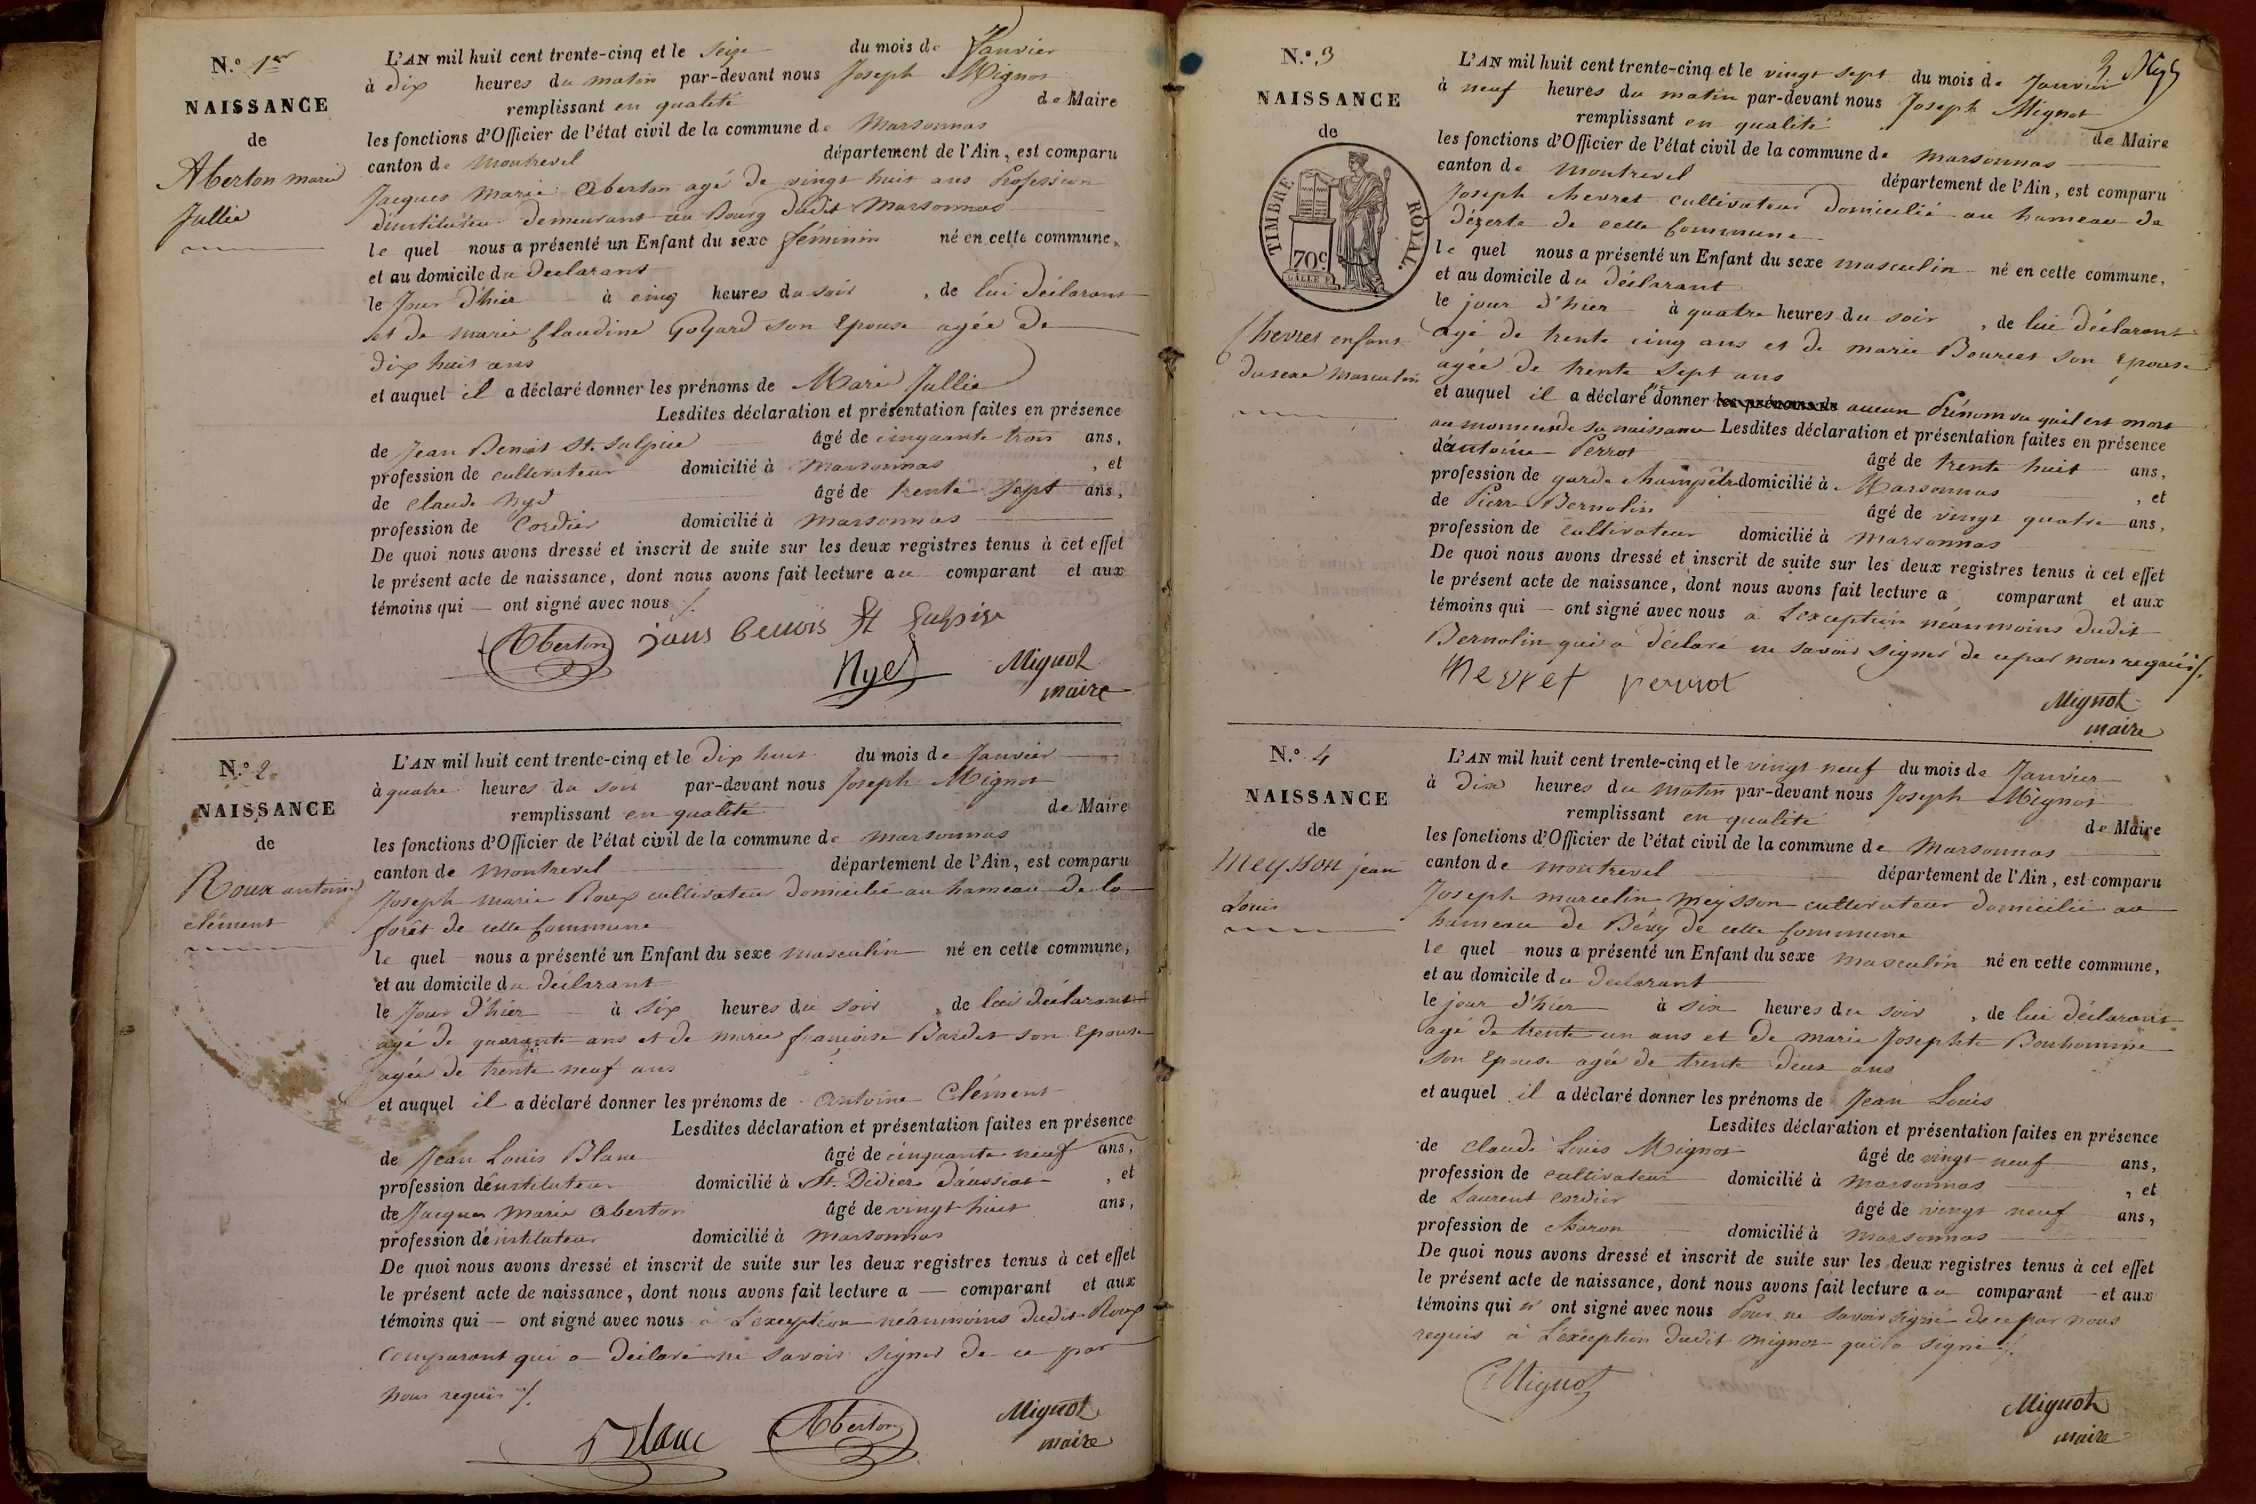 N.º 1er
NAISSANCE
de
Aberton marie
Jullie
L'AN mil huit cent trente-cinq et le seize du mois de Janvier
à dix heures du matin par-devant nous Joseph Mignot
remplissant en qualité de Maire
les fonctions d'Officier de l'état civil de la commune de Marsonnas
canton de Montrevel département de l'Ain, est comparu
Jacques Marie Aberton agé de vingt huit ans Profession
d'instituteur demeurant au Bourg dudit Marsonnas
le quel nous a présenté un Enfant du sexe féminin né en cette commune,
et au domicile du declarant
le Jour d'hier à cinq heures du soir, de lui déclarant
et de marie Claudine Goyard son Epouse agée de
dix huit ans
et auquel il a déclaré donner les prénoms de Marie Jullie
Lesdites déclaration et présentation faites en présence
de Jean Benoit St. Sulpice âgé de cinquante trois ans,
profession de cultivateur domicilié à Marsonnas, et
de Claude Nyd âgé de trente sept ans,
profession de Cordier domicilié à Marsonnas
De quoi nous avons dressé et inscrit de suite sur les deux registres tenus à cet effet
le présent acte de naissance, dont nous avons fait lecture au comparant et aux
témoins qui — ont signé avec nous ./.
Aberton jans benois St Sulpise
Nyd Mignot
maire
N.º 2
NAISSANCE
de
Roux antoine
clément
L'AN mil huit cent trente-cinq et le dix huit du mois de Janvier
à quatre heures du soir par-devant nous Joseph Mignot
remplissant en qualité de Maire
les fonctions d'Officier de l'état civil de la commune de Marsonnas
canton de Montrevel département de l'Ain, est comparu
Joseph marie Roux cultivateur domicilié au hameau de la
forêt de cette Commune
le quel nous a présenté un Enfant du sexe masculin né en cette commune,
et au domicile du déclarant
le Jour d'hier à six heures du soir, de lui déclarant
agé de quarante ans et de marie françoise Bardet son Epouse
agée de trente neuf ans
et auquel il a déclaré donner les prénoms de antoine Clément
Lesdites déclaration et présentation faites en présence
de Jean Louis Blanc âgé de cinquante neuf ans,
profession d'instituteur domicilié à St. Didier d'aussiat, et
de Jacques Marie Aberton âgé de vingt huit ans,
profession d'instituteur domicilié à Marsonnas
De quoi nous avons dressé et inscrit de suite sur les deux registres tenus à cet effet
le présent acte de naissance, dont nous avons fait lecture a — comparant et aux
témoins qui — ont signé avec nous à L'exception néanmoins dudit Roux
Comparant qui a déclaré ne savoir signer de ce par
nous requis ./.
Blanc Aberton Mignot
maire
N.º 3
NAISSANCE
de
TIMBRE ROYAL.
70c
Chevret enfant
du sexe masculin
L'AN mil huit cent trente-cinq et le vingt sept du mois de Janvier
à neuf heures du matin par-devant nous Joseph Mignot
remplissant en qualité de Maire
les fonctions d'Officier de l'état civil de la commune de Marsonnas
canton de Montrevel département de l'Ain, est comparu
Joseph chevret cultivateur domicilié au hameau de
dézerte de cette Commune
le quel nous a présenté un Enfant du sexe masculin né en cette commune,
et au domicile du déclarant
le jour d'hier à quatre heures du soir, de lui déclarant
agé de trente cinq ans et de marie Bourcet son Epouse
agée de trente sept ans
et auquel il a déclaré ne donner les prénoms de aucun Prénom vu qu'il est mort
au moment de sa naissance Lesdites déclaration et présentation faites en présence
d'antoine Perrot âgé de trente huit ans,
profession de garde champêtre domicilié à Marsonnas, et
de Pierre Bernolin âgé de vingt quatre ans,
profession de cultivateur domicilié à Marsonnas
De quoi nous avons dressé et inscrit de suite sur les deux registres tenus à cet effet
le présent acte de naissance, dont nous avons fait lecture a comparant et aux
témoins qui — ont signé avec nous à L'exception néanmoins dudit
Bernolin qui a déclaré ne savoir signer de ce par nous requis ./.
chevret perrot
Mignot
maire
N.º 4
NAISSANCE
de
Meysson jean
Louis
L'AN mil huit cent trente-cinq et le vingt neuf du mois de Janvier
à Dix heures du matin par-devant nous Joseph Mignot
remplissant en qualité de Maire
les fonctions d'Officier de l'état civil de la commune de Marsonnas
canton de Montrevel département de l'Ain, est comparu
Joseph marcelin Meysson cultivateur domicilié au
hameau de Bévy de cette Commune
le quel nous a présenté un Enfant du sexe masculin né en cette commune,
et au domicile du declarant
le jour d'hier à six heures du soir, de lui déclarant
agé de trente un ans et de marie Josephte Bonhomme
son Epouse agée de trente deux ans
et auquel il a déclaré donner les prénoms de Jean Louis
Lesdites déclaration et présentation faites en présence
de Claude Louis Mignot âgé de vingt neuf ans,
profession de cultivateur domicilié à Marsonnas, et
de Laurent Cordier âgé de vingt neuf ans,
profession de charon domicilié à Marsonnas
De quoi nous avons dressé et inscrit de suite sur les deux registres tenus à cet effet
le présent acte de naissance, dont nous avons fait lecture au comparant et aux
témoins qui n' ont signé avec nous Pour ne savoir signé de ce par nous
requis à L'exception dudit mignot qui a signé ./.
CMignot
Mignot
maire